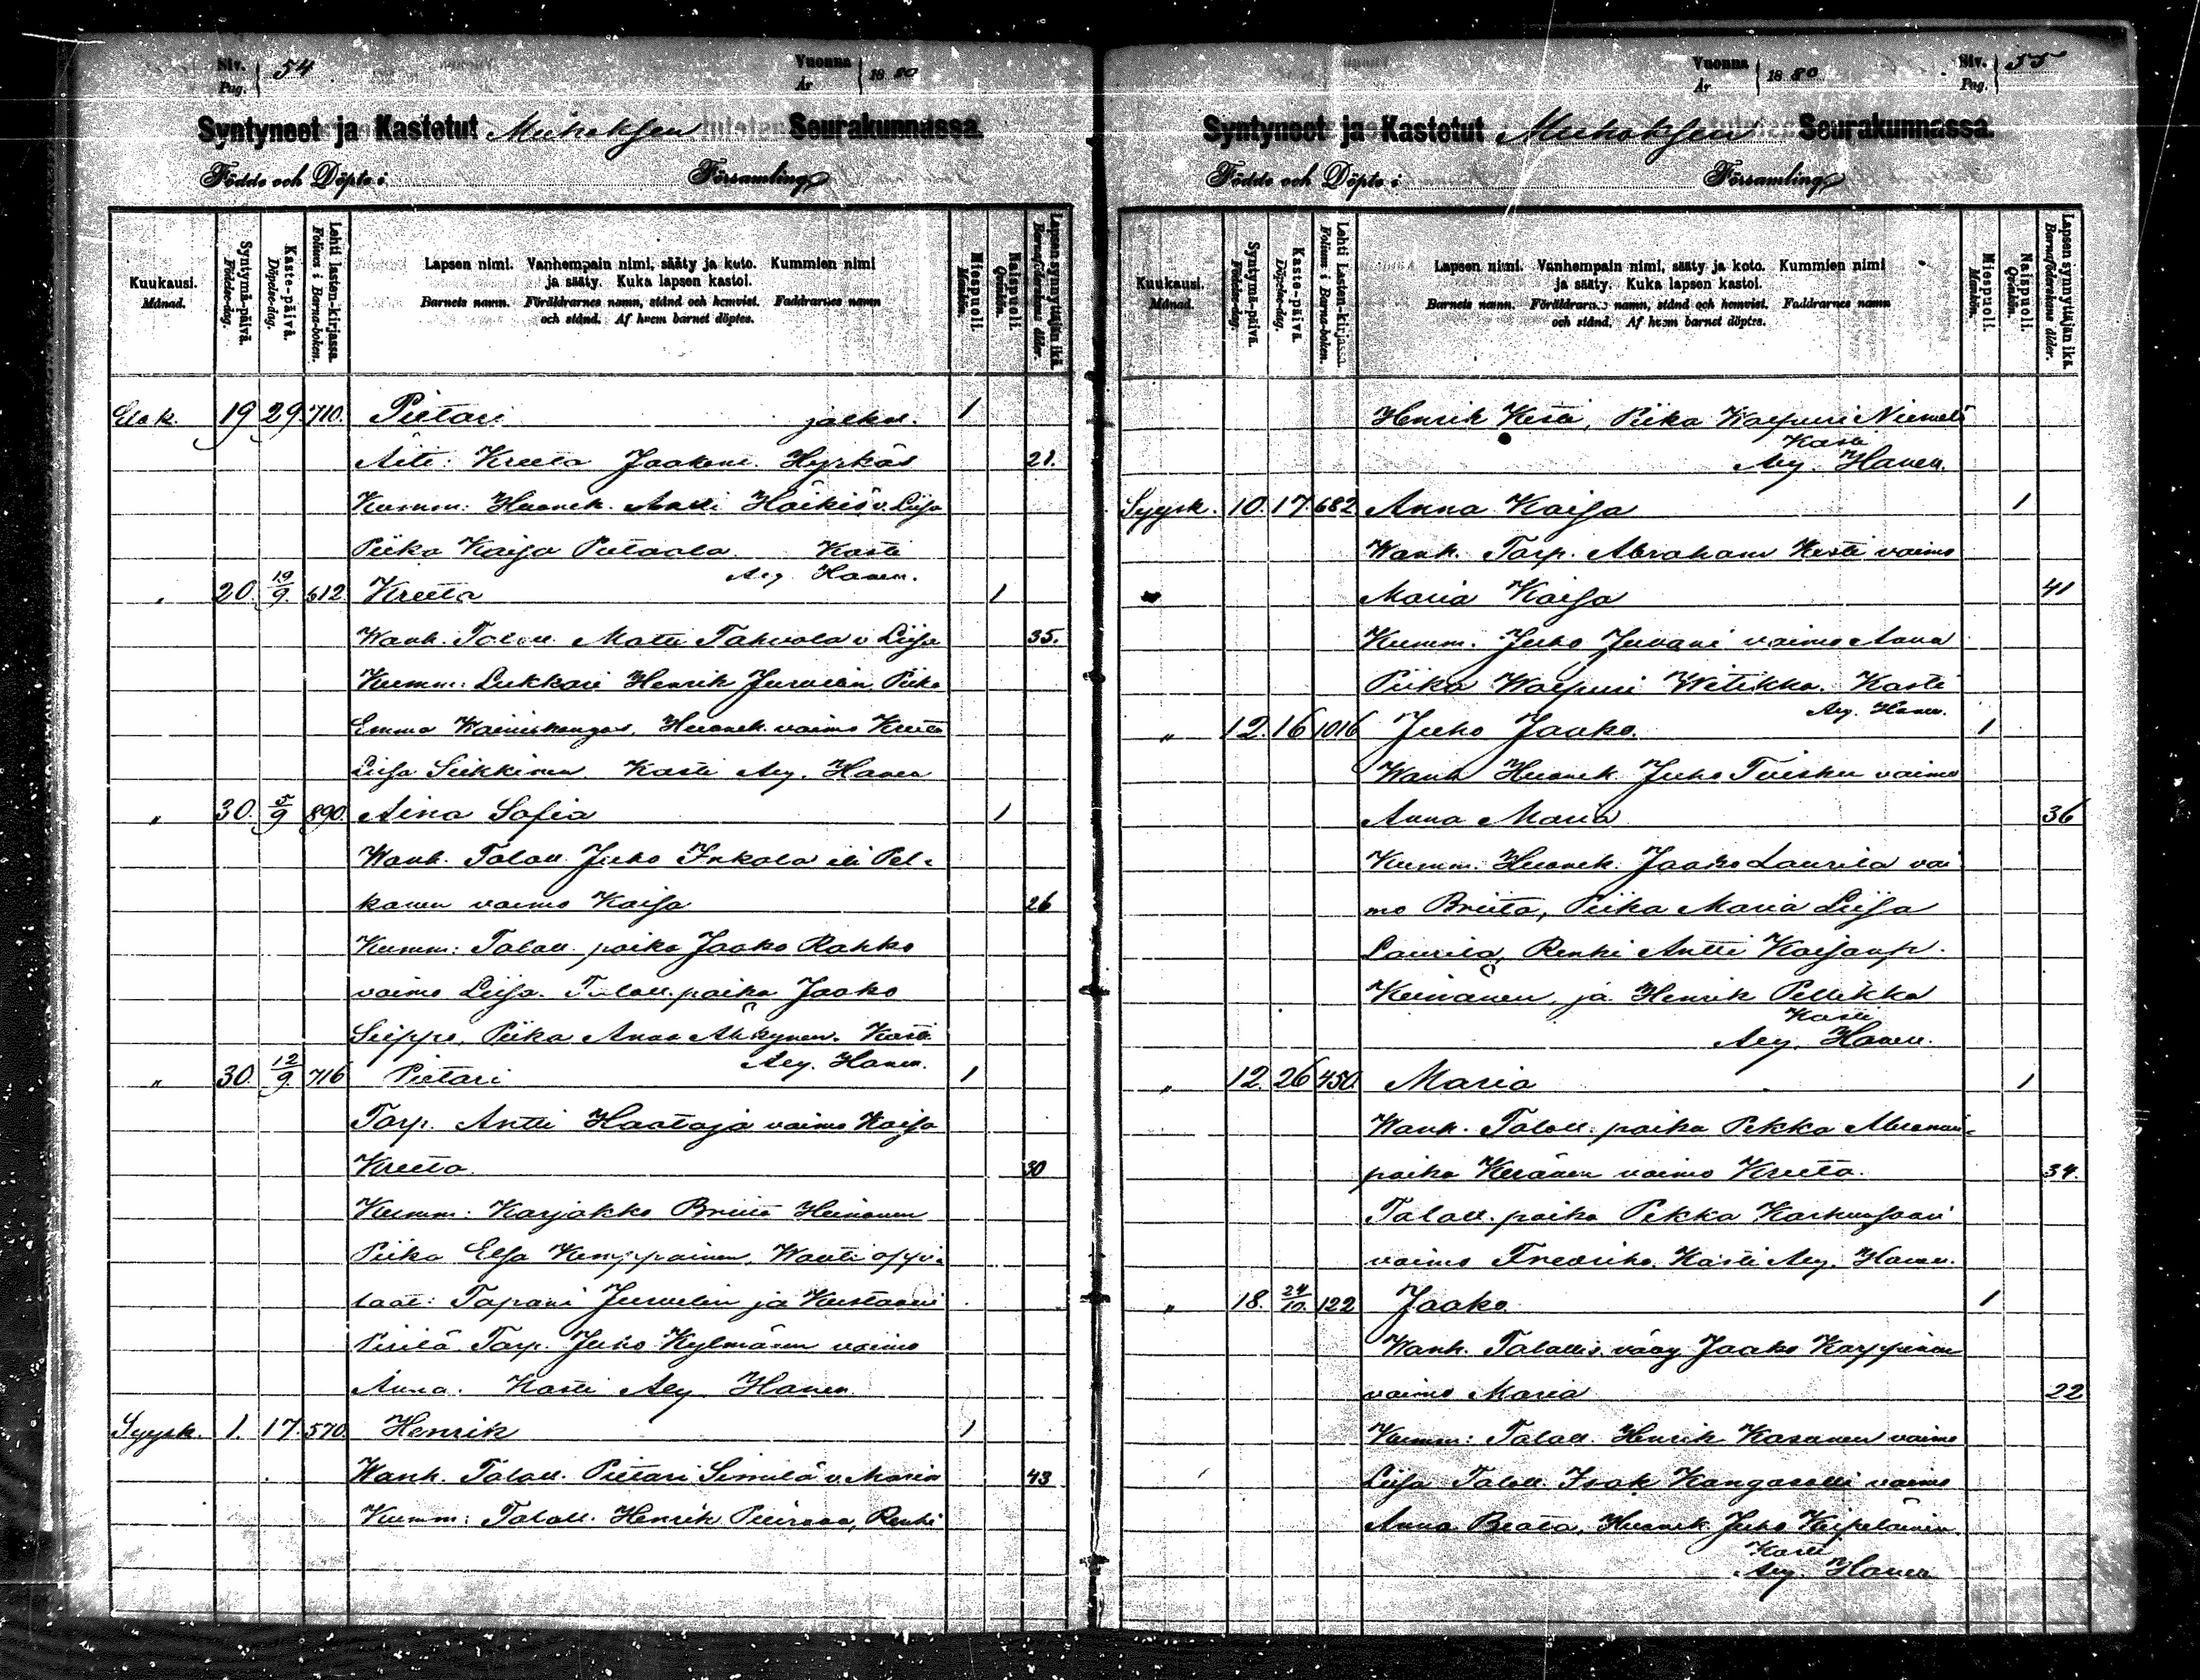 Siv. Pag. 54
Vuonna År 1880
Syntyneet ja Kastetut Muhoksen Seurakunnassa.
Födde och Döpte i Församling
Kuukausi. Månad.
Syntymä-päivä. Födelse-dag.
Kaste-päivä. Döpelse-dag.
Lehti lasten-kirjassa. Folium i Barna-boken.
Lapsen nimi. Vanhempain nimi, sääty ja koto. Kummien nimi
ja sääty. Kuka lapsen kastoi.
Barnets namn. Föräldrarnes namn, stånd och hemvist. Faddrarnes namn
och stånd. Af hvem barnet döptes.
Miespuoli. Mankön.
Naispuoli. Qvinkön.
Lapsen synnyttäjän ikä. Barnaföderskans ålder.
Elok. 19 29 710. Pietari 1
Äiti: Kreeta Jaakont. Hyrkäs 21.
Kumm: Huonek. Antti Häikiö v. Liisa
Piika Kaisa Pietaala Kasti
Arv. Haven.
" 20. 19/9. 612 Kreeta 1
Wanh. Taloll. Matti Tahvola v. Liisa 35.
Kumm: Lukkari Henrik Juvelin, Piika
Emma Wainiokangas, Huonek. vaimo Kreeta
Liisa Seikkinen Kasti Arv. Haven
" 30. 5/9 890. Aina Sofia 1
Wanh. Taloll. Juho Inkala eli Pel-
konen vaimo Kaisa 26
Kumm: Taloll. poika Jaako Rahko
vaimo Liisa. Taloll. poika Jaako
Seppo, Piika Anna Kasti
Arv. Haven.
" 30. 12/9 716 Pietari 1
Torp. Antti Haataja vaimo Kaisa
Kreeta. 30
Kumm: Karjakko Briita Heinonen
Piika Elsa Kemppainen,
Tapani Juvelin ja Kustaavi
Pirilä Torp. Juho Kylmänen vaimo
Anna. Kasti Arv. Haven
Syysk. 1. 17. 570. Henrik 1
Wanh. Taloll. Pietari Similä v. Maria 43
Kumm: Taloll. Henrik Renki
Vuonna År 1880
Siv. Pag. 55
Syntyneet ja Kastetut Muhoksen Seurakunnassa.
Födde och Döpte i Församling
Kuukausi. Månad.
Syntymä-päivä. Födelse-dag.
Kaste-päivä. Döpelse-dag.
Lehti Lasten-kirjassa. Folium i Barna-boken.
Lapsen nimi. Vanhempain nimi, sääty ja koto. Kummien nimi
ja sääty. Kuka lapsen kastoi.
Barnets namn. Föräldrarnes namn, stånd och hemvist. Faddrarnes namn
och stånd. Af hvem barnet döptes.
Miespuoli. Mankön.
Naispuoli. Qvinkön.
Lapsen synnyttäjän ikä. Barnaföderskans ålder.
Henrik Kesti, Piika Walpuri Niemelä
Kasti
Arv. Haven.
Syysk. 10. 17. 682 Anna Kaisa 1
Wanh. Torp. Abraham Kesti vaimo
Maria Kaisa 41
Kumm. Juho Juvani vaimo Anna
Piika Walpuri Witikka. Kasti
Arv. Haven.
" 12. 16 1016 Juho Jaako. 1
Wanh Huonek. Juho Tuisku vaimo
Anna Maria 36
Kumm. Huonek. Jaako Laurila vai
mo Briita, Piika Maria Liisa
Laurila, Renki Antti Kaisanp.
Keinänen, ja Henrik Pellikka
Kasti
Arv. Haven.
" 12. 26 450. Maria 1
Wanh. Taloll. poika Pekka
poika Keränen vaimo Kreeta. 34.
Taloll. poika Pekka Karhunsaari
vaimo Fredrika. Kasti Arv. Haven.
" 18. 24/10. 122 Jaako 1
Wanh. Tallollis. vävy Jaako Karppinen
vaimo Maria 22
Kumm: Taloll. Henrik Kasanen vaimo
Liisa Taloll. Isak Kangasolli vaimo
Anna Beata, Huonek. Juho Keipeläinen
Kasti
Arv. Haven